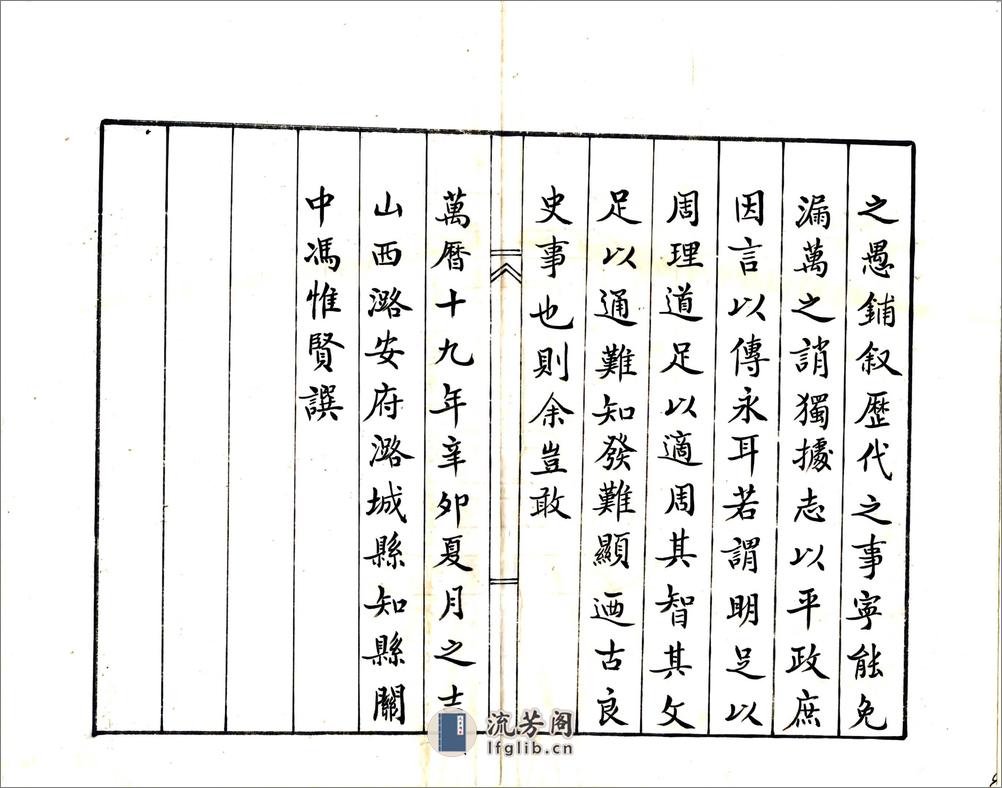 之愚鋪叙歷代之事寧能免
漏萬之誚獨據志以平政庶
因言以傳永耳若謂明足以
周理道足以適周其智其文
足以通難知發難顯迺古良
史事也則余豈敢
萬曆十九年辛卯夏月之吉
山西潞安府潞城縣知縣關
中馮惟賢譔
流芳阁
lfglib.cn